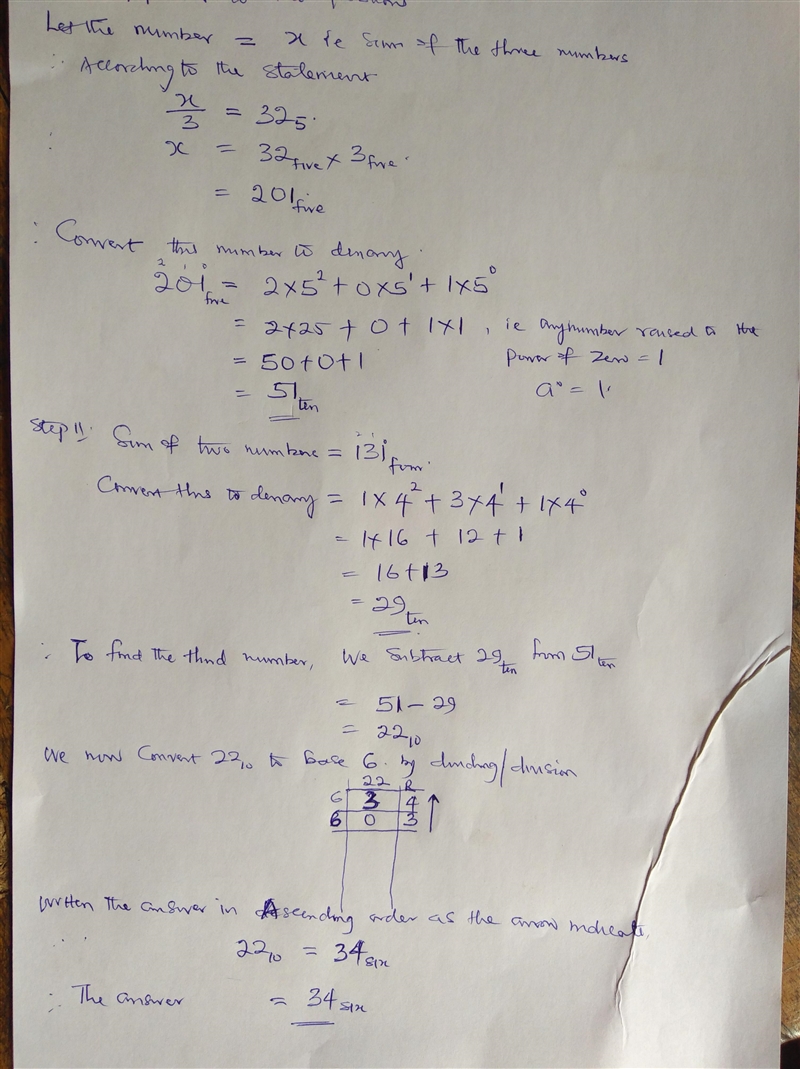 Let the number = x ie Sum of the three numbers
∴ According to the statement
x/3 = 32₅.
x = 32five × 3five.
= 201five
∴ Convert this number to denary.
2 1 0
201five = 2×5² + 0×5¹ + 1×5⁰
= 2×25 + 0 + 1×1, ie any number raised to the
= 50+0+1 Power of Zero = 1
= 51ten a⁰ = 1.
Step 11: Sum of two numbers = 131four.
Convert this to denary = 1×4² + 3×4¹ + 1×4⁰
= 1×16 + 12 + 1
= 16+13
= 29ten
∴ To find the third number, We Subtract 29ten from 51ten
= 51 - 29
= 22₁₀
We now Convert 22₁₀ to base 6. by dividing/division
22 R
6 3 4
6 0 3
Written the answer in Ascending order as the arrow indicate.
22₁₀ = 34six
∴ The answer = 34six